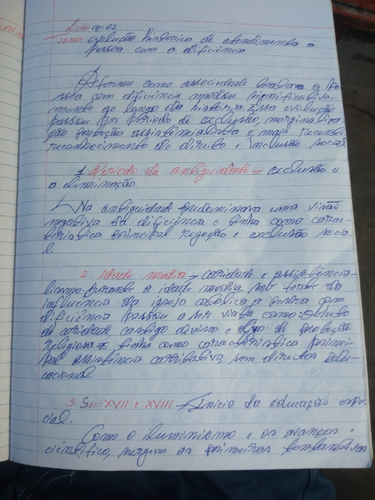 Lição nº 02
Tema: evolução histórica de atendimento a
pessoa com a deficiência
A forma como a sociedade encarou a pes
soa com deficiência mudou significativa-
mente ao longo da história essa evolução
passou por período de exclusão, marginaliza
ção proteção assistencialista e mais
reconhecimento de direito e inclusão social
1. Período da antiguidade → exclusão e
a eliminação.
Na antiguidade predominava uma visão
negativa da deficiência e tinha como carac-
terística principal rejeição e exclusão socia
l.
2. Idade media → caridade e assistencia-
lismo durante a idade media sob forte da
influência da igreja católica a pessoa com
deficiência passou a ser vista como objecto
de caridade, castigo divino e de proteção
religiosa tinha como característica princi
pal assistência caritativa, sem direitos edu
cacional
3. Sec: XVII e XVIII → Início da educação espe
cial.
Com o iluminismo e os avanços
científico, surgem as primeiras